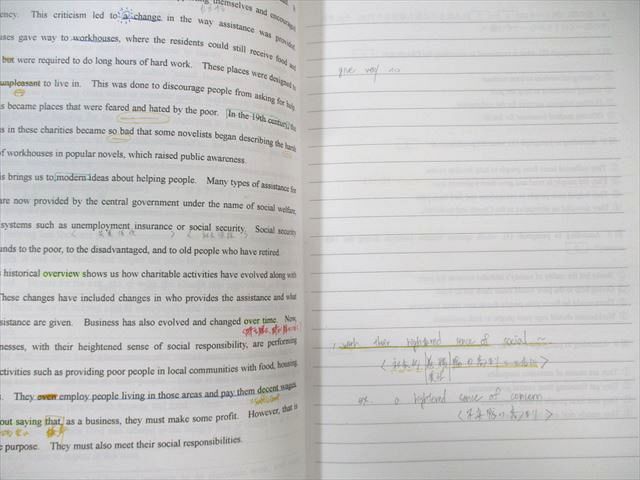 ng themselves and encouraged
ency. This criticism led to a change in the way assistance was provided.
uses gave way to workhouses, where the residents could still receive food and
but were required to do long hours of hard work. These places were designed to
unpleasant to live in. This was done to discourage people from asking for help.
s became places that were feared and hated by the poor. In the 19th century, the
s in these charities became so bad that some novelists began describing the harsh
of workhouses in popular novels, which raised public awareness.
is brings us to modern ideas about helping people. Many types of assistance for
are now provided by the central government under the name of social welfare,
systems such as unemployment insurance or social security. Social security
unds to the poor, to the disadvantaged, and to old people who have retired.
historical overview shows us how charitable activities have evolved along with
These changes have included changes in who provides the assistance and what
sistance are given. Business has also evolved and changed over time. Now,
nesses, with their heightened sense of social responsibility, are performing
ctivities such as providing poor people in local communities with food, housing,
. They even employ people living in those areas and pay them decent wages.
out saying that, as a business, they must make some profit. However, that is
e purpose. They must also meet their social responsibilities.
give way
with their hightened sense of social ~
ex. a hightened sense of concern